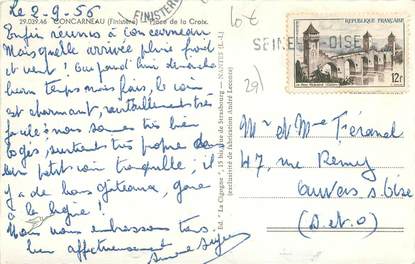 Le 2-9-56
29.039.46 CONCARNEAU (Finistère) - Place de la Croix.
Enfin réunis à Concarneau
Mais quelle arrivée pluie froid
et vent! Aujourd'hui dimanche
beau temps mais frais, le coin
est charmant, ravitaillement très
facile nous sommes très bien
logés surtout très propre dans
un petit coin tranquille; il
y a de bons gâteaux, gare
à la ligne!
Nous vous embrassons tous.
bien affectueusement
Ed. "La Cigogne", 15 bis rue de Strasbourg - NANTES (L.-I.)
(exclusivité de fabrication André Leconte)
FINISTÈRE
10€
29)
SEINE-ET-OISE
REPUBLIQUE FRANÇAISE
12f
Mr et Mme Férand
47, rue Remy
Auvers s. Oise
(S-et-O)